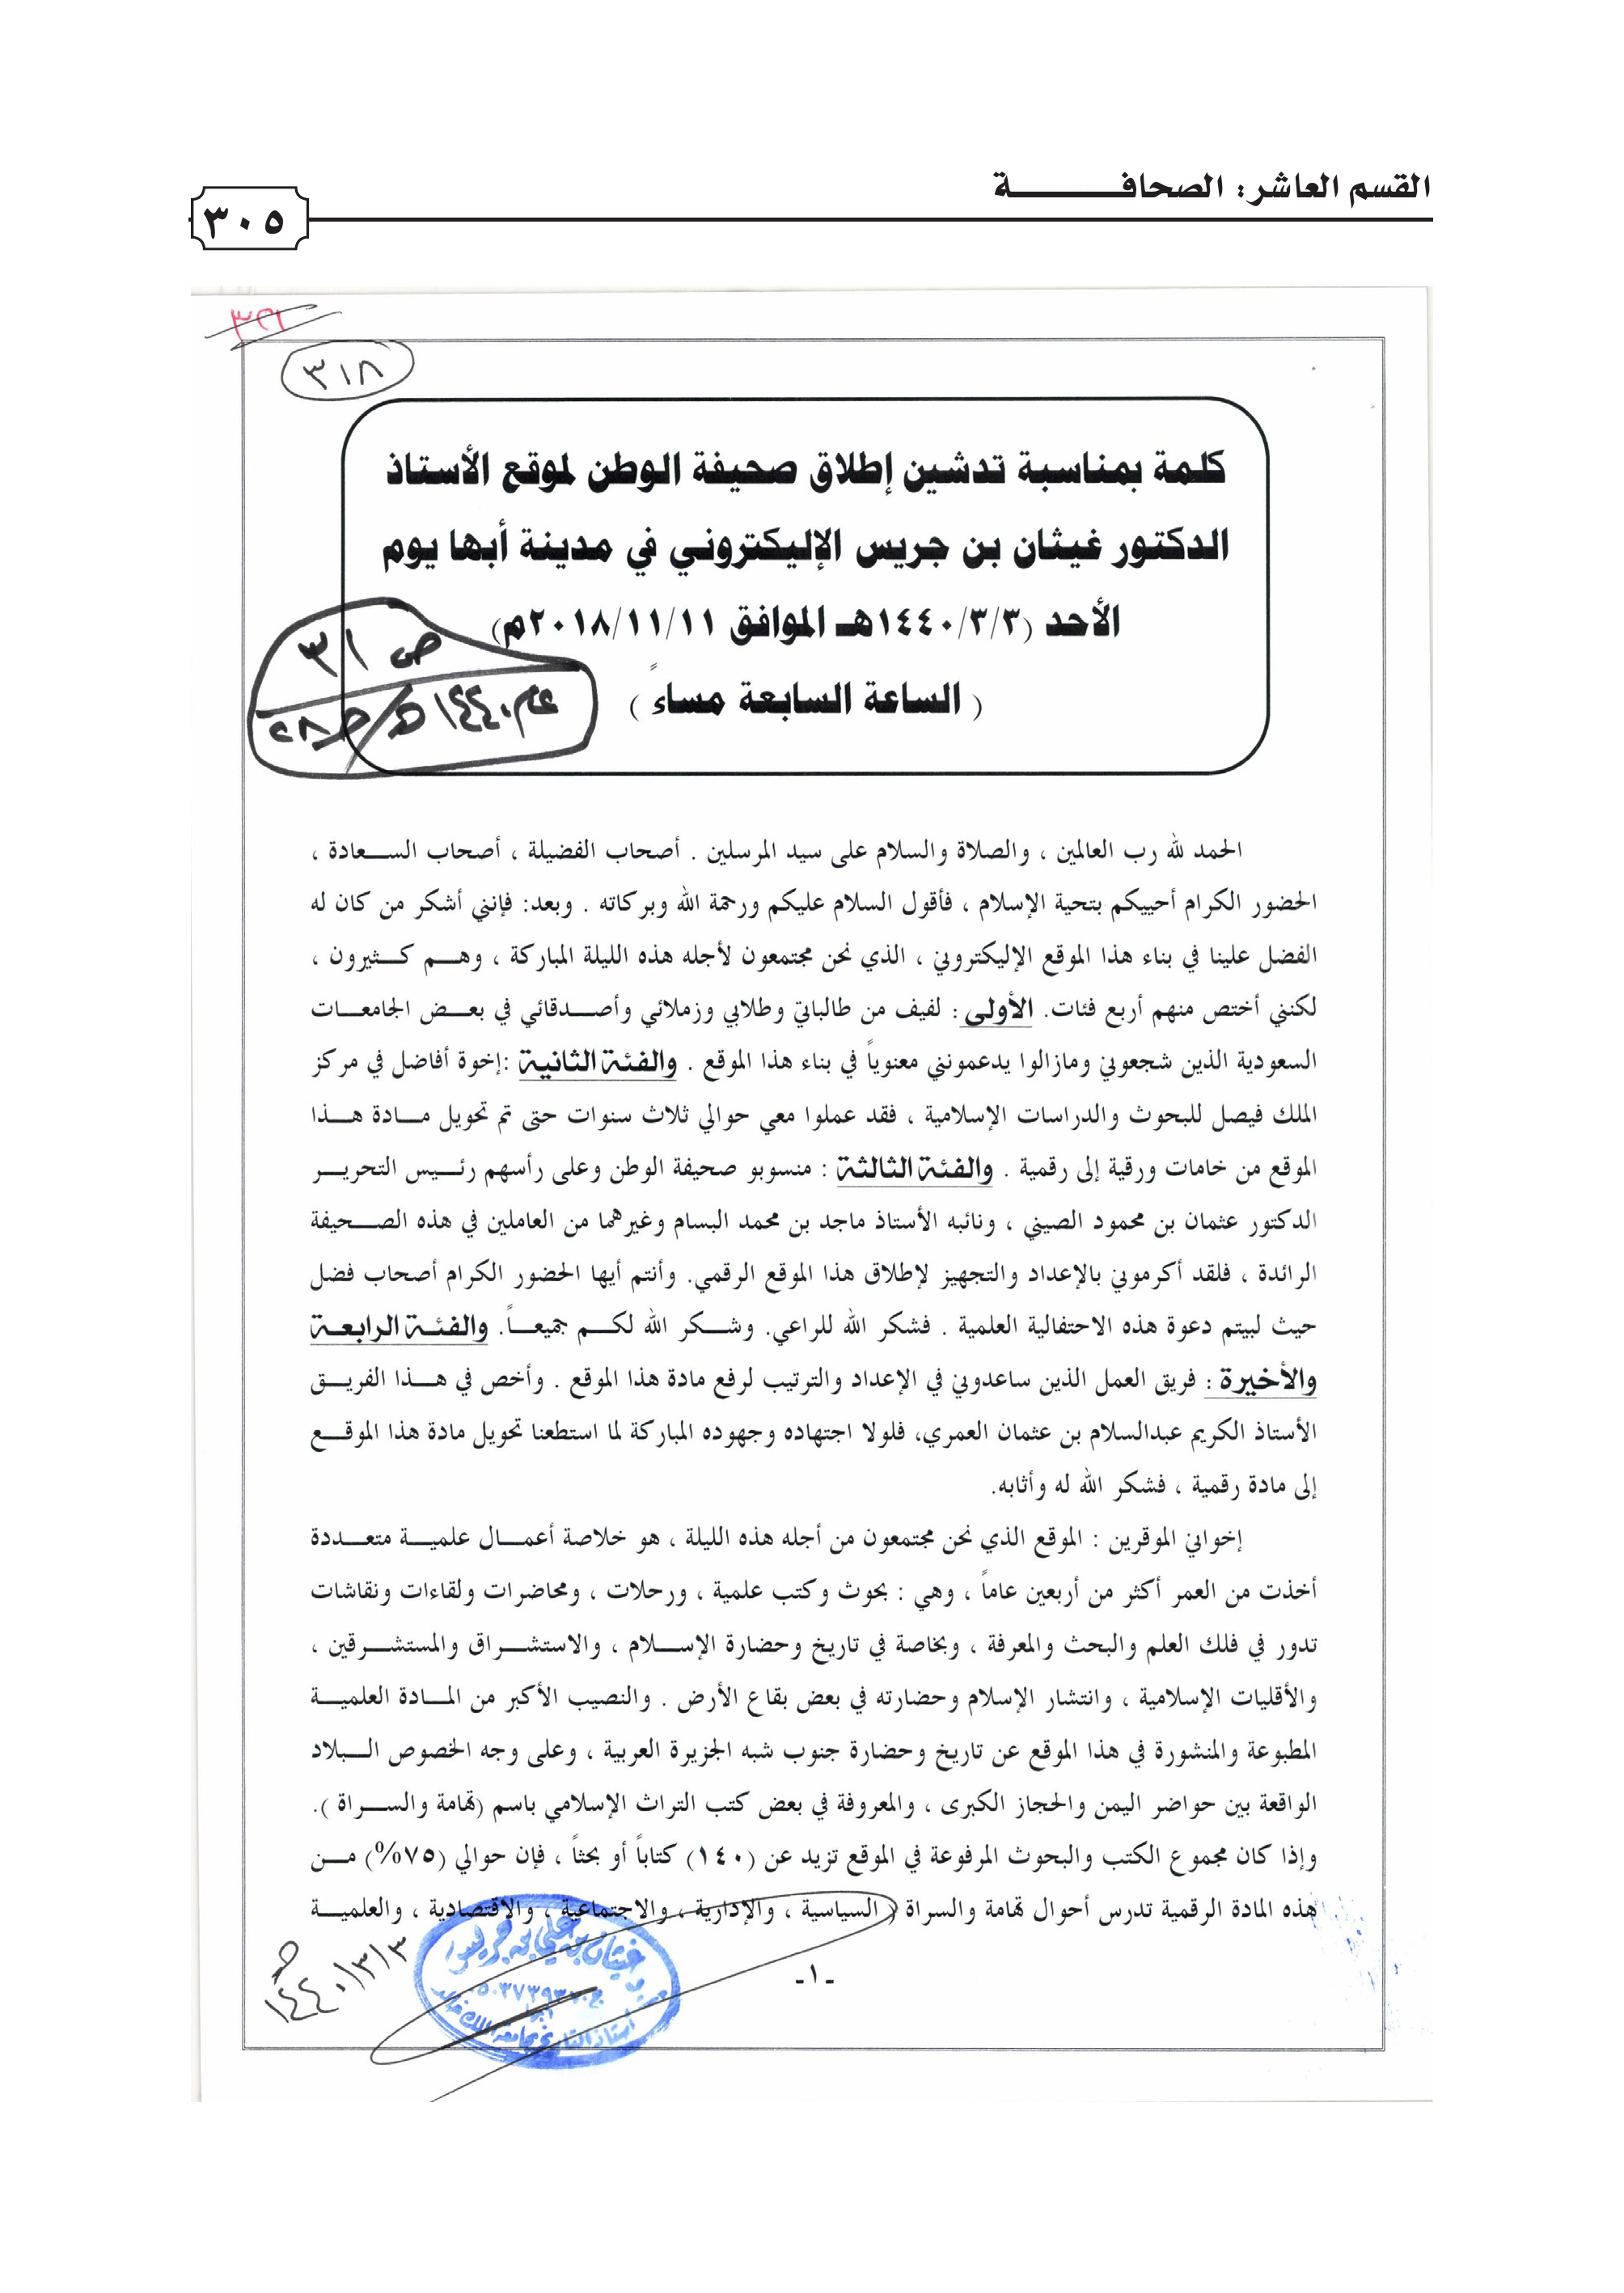 القسم العاشر: الصحافـــــــــــة
٣٠٥
٣١٨
كلمة بمناسبة تدشين إطلاق صحيفة الوطن لموقع الأستاذ
الدكتور غيثان بن جريس الإليكتروني في مدينة أبها يوم
الأحد (١٤٤٠/٣/٣هـ الموافق ٢٠١٨/١١/١١م)
( الساعة السابعة مساءً )
ص ٣١
عام ١٤٤٠هـ/ جـ٢٨
الحمد لله رب العالمين ، والصلاة والسلام على سيد المرسلين . أصحاب الفضيلة ، أصحاب الســعادة ،
الحضور الكرام أحييكم بتحية الإسلام ، فأقول السلام عليكم ورحمة الله وبركاته . وبعد: فإنني أشكر من كان له
الفضل علينا في بناء هذا الموقع الإليكتروني ، الذي نحن مجتمعون لأجله هذه الليلة المباركة ، وهــم كــثيرون ،
لكنني أختص منهم أربع فئات. الأولى : لفيف من طالباتي وطلابي وزملائي وأصــدقائي في بعــض الجامعــات
السعودية الذين شجعوني ومازالوا يدعمونني معنوياً في بناء هذا الموقع . والفئة الثانية :إخوة أفاضل في مركز
الملك فيصل للبحوث والدراسات الإسلامية ، فقد عملوا معي حوالي ثلاث سنوات حتى تم تحويل مــادة هــذا
الموقع من خامات ورقية إلى رقمية . والفئة الثالثة : منسوبو صحيفة الوطن وعلى رأسهم رئــيس التحريــر
الدكتور عثمان بن محمود الصيني ، ونائبه الأستاذ ماجد بن محمد البسام وغيرهما من العاملين في هذه الصــحيفة
الرائدة ، فلقد أكرموني بالإعداد والتجهيز لإطلاق هذا الموقع الرقمي. وأنتم أيها الحضور الكرام أصحاب فضل
حيث لبيتم دعوة هذه الاحتفالية العلمية . فشكر الله للراعي. وشــكر الله لكــم جميعــاً. والفئــة الرابعــة
والأخيرة : فريق العمل الذين ساعدوني في الإعداد والترتيب لرفع مادة هذا الموقع . وأخص في هــذا الفريــق
الأستاذ الكريم عبدالسلام بن عثمان العمري، فلولا اجتهاده وجهوده المباركة لما استطعنا تحويل مادة هذا الموقــع
إلى مادة رقمية ، فشكر الله له وأثابه.
إخواني الموقرين : الموقع الذي نحن مجتمعون من أجله هذه الليلة ، هو خلاصة أعمــال علميــة متعــددة
أخذت من العمر أكثر من أربعين عاماً ، وهي : بحوث وكتب علمية ، ورحلات ، ومحاضرات ولقاءات ونقاشات
تدور في فلك العلم والبحث والمعرفة ، وبخاصة في تاريخ وحضارة الإســلام ، والاستشــراق والمستشــرقين ،
والأقليات الإسلامية ، وانتشار الإسلام وحضارته في بعض بقاع الأرض . والنصيب الأكبر من المــادة العلميــة
المطبوعة والمنشورة في هذا الموقع عن تاريخ وحضارة جنوب شبه الجزيرة العربية ، وعلى وجه الخصوص الــبلاد
الواقعة بين حواضر اليمن والحجاز الكبرى ، والمعروفة في بعض كتب التراث الإسلامي باسم (تهامة والســراة ).
وإذا كان مجموع الكتب والبحوث المرفوعة في الموقع تزيد عن (١٤٠) كتاباً أو بحثاً ، فإن حوالي (٧٥%) مــن
هذه المادة الرقمية تدرس أحوال تهامة والسراة ( السياسية ، والإدارية ، والاجتماعية ، والاقتصادية ، والعلميــة
-١-
١٤٤٠/٣/٣هـ
غيثان بن علي بن جريس
أبها
أستاذ التاريخ بجامعة الملك خالد